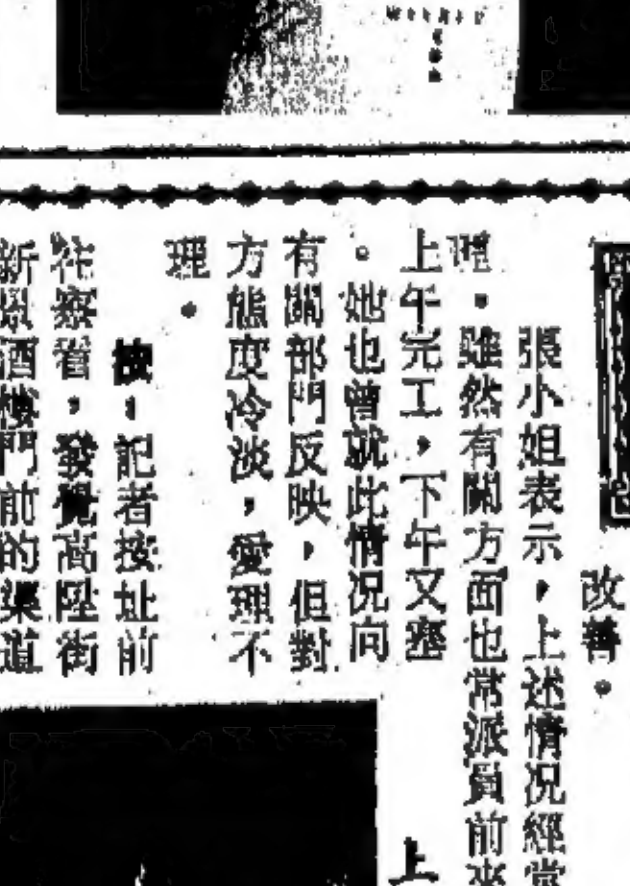 改善。
張小姐表示，上述情況經常
理。雖然有關方面也常派員前來
上午完工，下午又塞
。她也曾就此情況向
有關部門反映，但對
方態度冷淡，愛理不
理。
按：記者按址前
往察看，發覺高陞街
新景酒樓門前的渠道
上